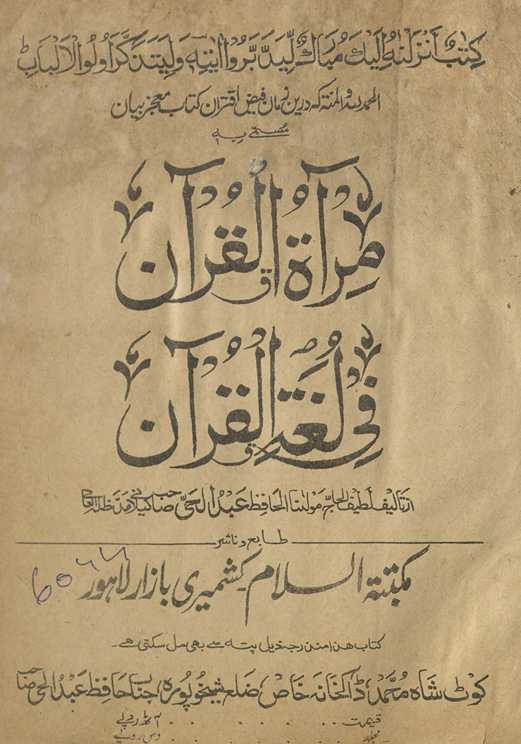 كتٰبٌ أنزلنٰه إليك مبارك ليدبروا اٰيٰته وليتذكر أولوا الألباب
الحمد لله والمنة که درین زمان فیض اقتران کتاب معجز بیان
مسمّٰے بہ
مرآة القرآن
في لغة القرآن
از تالیف لطیف الحاج مولٰنا الحافظ عبد الحی صاحب کیلانی
طابع و ناشر
مکتبة السلام کشمیری بازار لاہور
کتاب ھذا مندرجہ ذیل پتہ سے بھی مل سکتی ہے۔
کوٹ شاہ محمد، ڈاکخانہ خاص، ضلع شیخوپورہ، جناب حافظ عبد الحی صاحب
قیمت . . . . . . آٹھ روپے
مجلد . . . . . . دس روپے